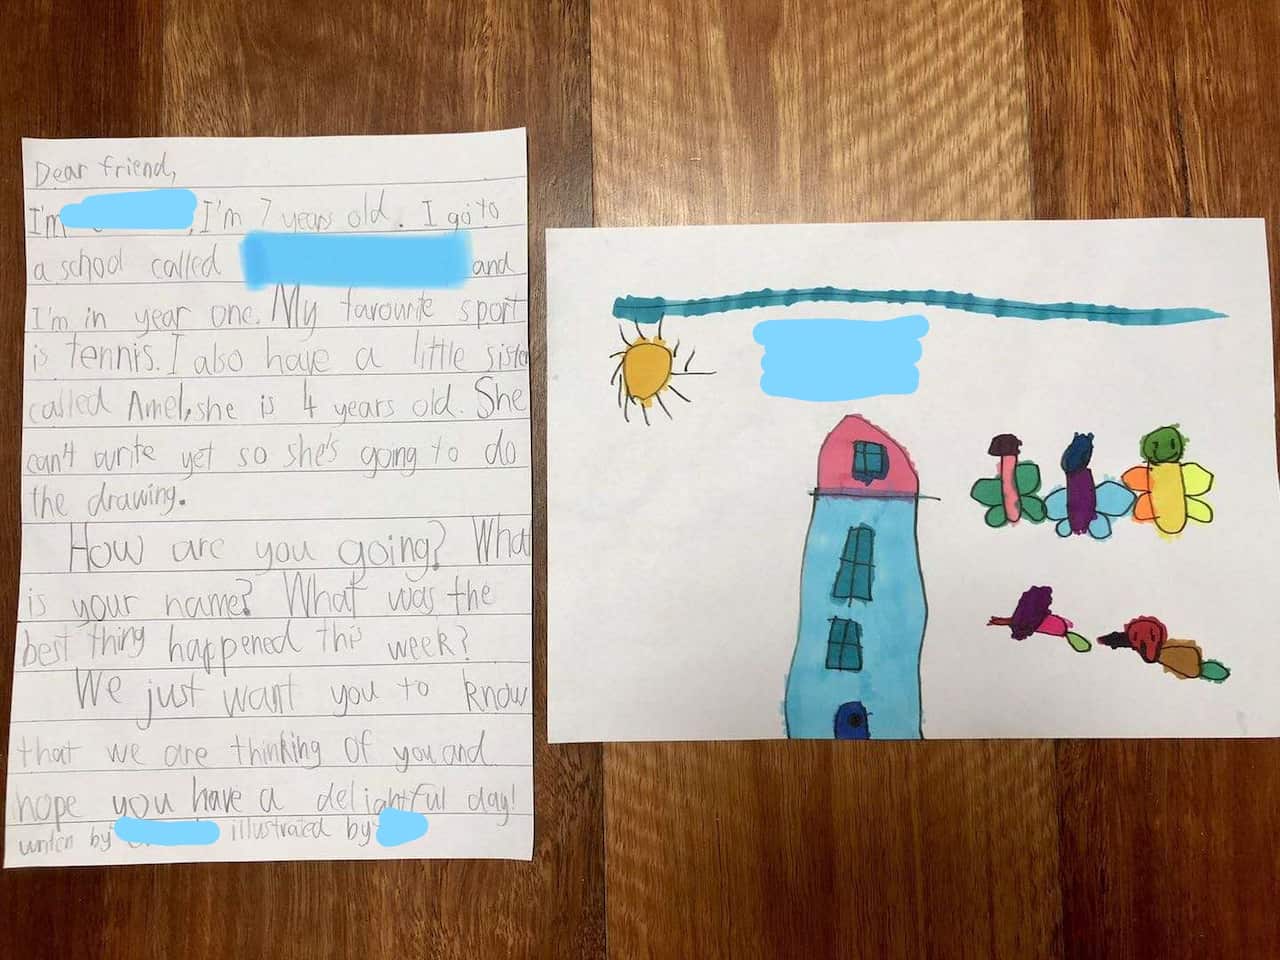 Dear friend,
I'm , I'm 7 years old. I go to
a school called and
I'm in year one. My favourite sport
is tennis. I also have a little sister
called Amel, she is 4 years old. She
can't write yet so she's going to do
the drawing.
How are you going? What
is your name? What was the
best thing happened this week?
We just want you to know
that we are thinking of you and
hope you have a delightful day!
written by illustrated by